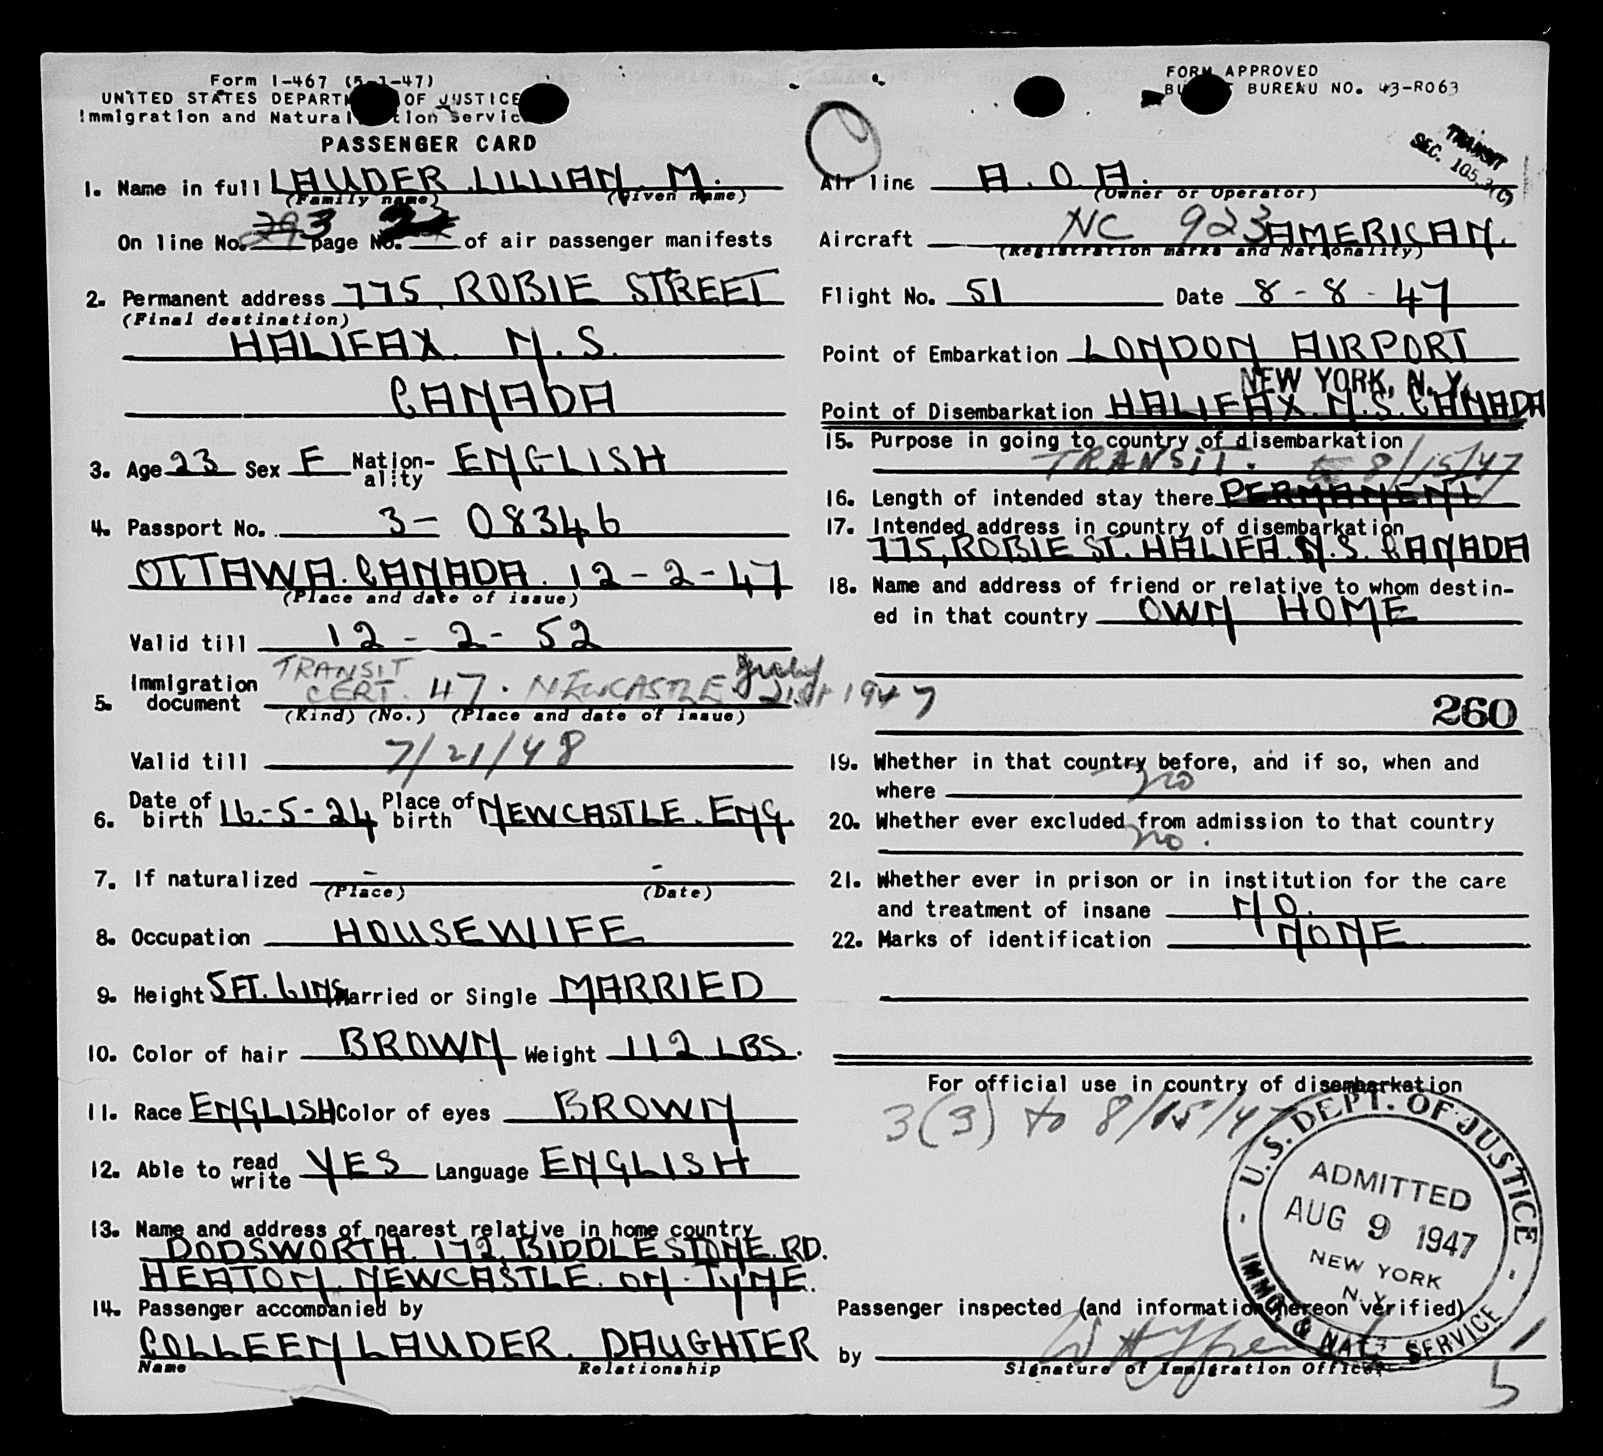 Form I-467 (5-1-47)
UNITED STATES DEPARTMENT OF JUSTICE
Immigration and Naturalization Service
PASSENGER CARD
1. Name in full LAUDER LILLIAN. M.
(Family name) (Given name)
On line No. 3 page No. 2 of air passenger manifests
2. Permanent address 775, ROBIE STREET
(Final destination)
HALIFAX. N.S.
CANADA
3. Age 23 Sex F Nationality ENGLISH
4. Passport No. 3- 08346
OTTAWA. CANADA. 12-2-47
(Place and date of issue)
Valid till 12 - 2 - 52
5. Immigration document TRANSIT CERT. 47. NEWCASTLE July 21st 1947
(Kind) (No.) (Place and date of issue)
Valid till 7/21/48
6. Date of birth 16-5-24 Place of birth NEWCASTLE. ENG.
7. If naturalized - -
(Place) (Date)
8. Occupation HOUSEWIFE
9. Height 5FT. 6INS Married or Single MARRIED
10. Color of hair BROWN Weight 112 LBS.
11. Race ENGLISH Color of eyes BROWN
12. Able to read write YES Language ENGLISH
13. Name and address of nearest relative in home country
DODSWORTH. 172, BIDDLESTONE. RD.
HEATON. NEWCASTLE. ON. TYNE.
14. Passenger accompanied by
COLLEEN LAUDER. DAUGHTER
Name Relationship
FORM APPROVED
BUDGET BUREAU NO. 43-R063
TRANSIT
SEC. 105.3(C)
Air line A.O.A.
(Owner or Operator)
Aircraft NC 923 AMERICAN.
(Registration marks and Nationality)
Flight No. 51 Date 8 - 8 - 47
Point of Embarkation LONDON AIRPORT
NEW YORK, N. Y.
Point of Disembarkation HALIFAX. N.S. CANADA
15. Purpose in going to country of disembarkation
TRANSIT. to 8/15/47
16. Length of intended stay there PERMANENT
17. Intended address in country of disembarkation
775, ROBIE ST. HALIFA. N.S. CANADA
18. Name and address of friend or relative to whom destin-
ed in that country OWN HOME
260
19. Whether in that country before, and if so, when and
where no
20. Whether ever excluded from admission to that country
no.
21. Whether ever in prison or in institution for the care
and treatment of insane NO.
22. Marks of identification NONE
For official use in country of disembarkation
3(3) to 8/15/47
U.S. DEPT. OF JUSTICE
ADMITTED
AUG 9 1947
NEW YORK
N.Y.
IMMG. & NATZ. SERVICE
Passenger inspected (and information hereon verified)
by
Signature of Immigration Officer